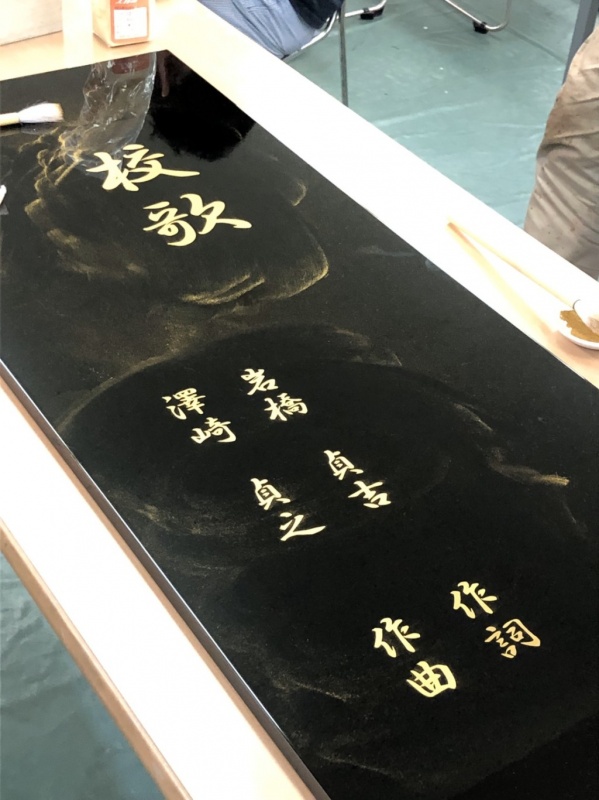 校歌
岩橋 貞吉 作詞
澤崎 貞之 作曲